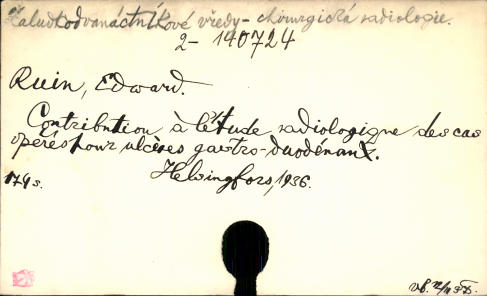 Žaludkodvanáctníkové vředy - chirurgická radiologie.
2-140724
Ruin, Edward.
Contribution à l'étude radiologique des cas
opérés pour ulcères gastro-duodénaux.
Helsingfors, 1936.
179 s.